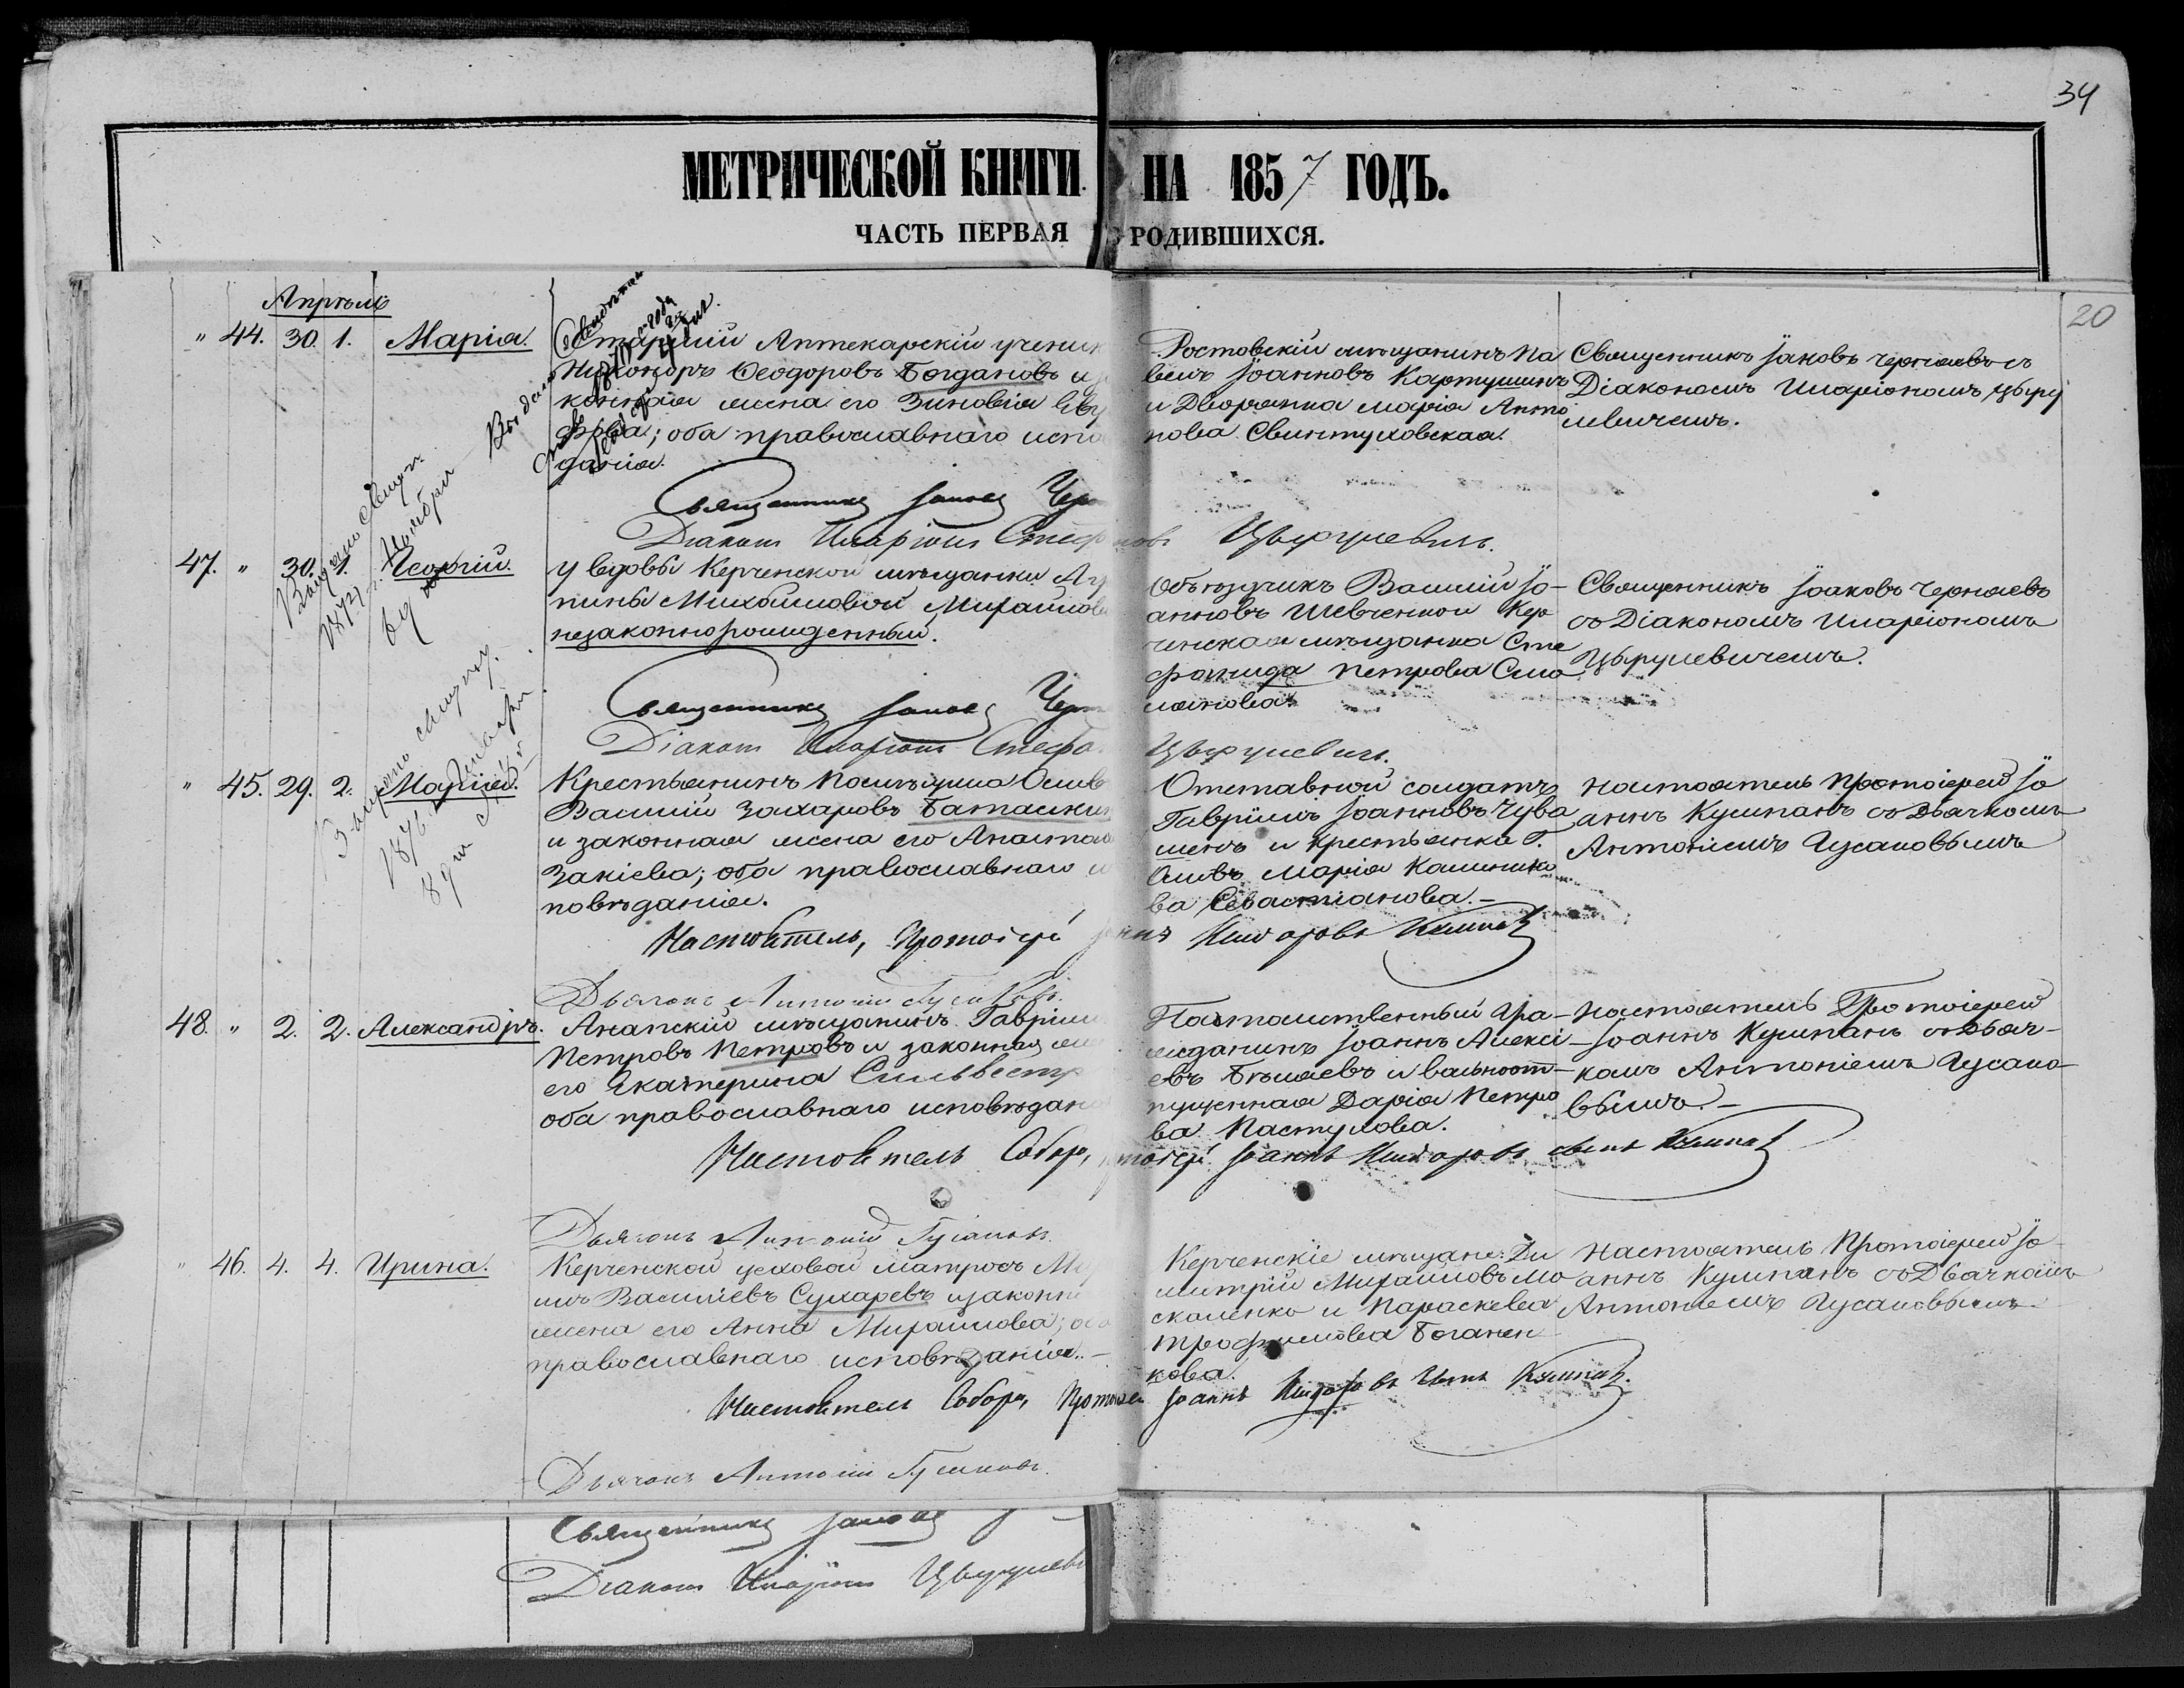 34
МЕТРИЧЕСКОЙ КНИГИ НА 1857 ГОДЪ.
ЧАСТЬ ПЕРВАЯ РОДИВШИХСЯ.
20
Апрѣль
" 44. 30. 1. Марія.
Старшій Аптекарскій ученик
Никоноръ Ѳеодоровъ Богдановъ и
жена его Зиновія
оба православнаго испо
данія.
Ростовскій мѣщанинъ Па
велъ Іоанновъ Картушинъ
и Дворянка Марія Анто
нова Свинтуховская.
Священникъ Іаковъ Чернявъ съ
Діакономъ Иларіономъ Цыру
левичемъ.
Священникъ Іаковъ Чер
Діаконъ Иларіонъ Стефановъ Цырулевичъ.
47. " 30. 1. Георгій.
У вдовы Керченской мѣщанки
Михайловой Михайлов
незаконнорожденный.
Объездчикъ Василій Іо-
анновъ Шевченко и Кер
ченская мѣщанка Сте
фанида Петрова Смо
лянова.
Священникъ Іаковъ Чернявъ
съ Діакономъ Иларіономъ
Цырулевичемъ.
Священникъ Іаковъ Чер
Діаконъ Иларіонъ Стефа Цырулевичъ.
" 45. 29. 2. Марія.
Крестьянинъ Помѣщика
Василій Захаровъ Баташки
и законная жена его Анастас
Закіева; оба православнаго и
повѣданія.
Отставной солдатъ
Гавріилъ Іоанновъ Чува
и крестьянка Г.
Марія
ва Севастіанова.
Настоятель Протоіерей Іо
аннъ Кумпанъ съ Дьячкомъ
Антоніемъ Гусаковымъ
Настоятель, Протоіерей Іоаннъ Кумпанъ
Дьячокъ Антоній Гусаковъ.
48. " 2. 2. Александръ.
Анапскій мѣщанинъ Гавріил
Петровъ Петровъ и законная же
его Екатерина Сильвестр
оба православнаго исповѣдан
Потомственный Гра-
жданинъ Іоаннъ Алексі-
евъ Бѣляевъ и вольноот-
пущенная Дарія Петро
ва Пастухова.
Настоятель Протоіерей
Іоаннъ Кумпанъ съ Дьяч-
комъ Антоніемъ Гусако-
вымъ.
Настоятель Собора, Протоіерей Іоаннъ Кумпанъ
Дьячокъ Антоній Гусаковъ.
" 46. 4. 4. Ирина.
Керченской цеховой матросъ Ми
илъ Васильевъ Сухаревъ и законн
жена его Анна Михайлова; оба
православнаго исповѣданія.
Керченскіе мѣщане: Ди
митрій Михайловъ Мо
скаленко и Параскева
Трофимова Боганен
кова.
Настоятель Протоіерей Іо-
аннъ Кумпанъ съ Дьячкомъ
Антоніемъ Гусаковымъ
Настоятель Собора, Протоіерей Іоаннъ Кумпанъ.
Дьячокъ Антоній Гусаковъ.
Священникъ Іаковъ
Діаконъ Иларіонъ Цырулеви